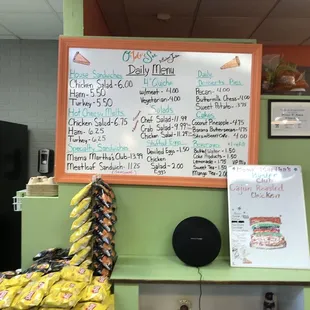 Daily Menu
House Sandwiches
Chicken Salad-6.00
Ham-5.50
Turkey-5.50
Hot Cheesy Melts
Chicken Salad-6.75
Ham-6.25
Turkey-6.25
Specialty Sandwiches
Mama Martha's Club-13.99
Meatloaf Sandwich-11.25
4" Quiche
w/meat-4.00
Vegetarian-4.00
Salads
Chef Salad-11.99
Crab Salad-4.99
Chicken Salad-11.75
Stuffed Eggs
Deviled Eggs-1.50
Chicken
Salad-2.00
Daily
Desserts
Pies
Pecan-4.00
Buttermilk Chess-4.00
Sweet Potato-
Cakes
Coconut Pineapple-4.75
Banana
Beverages
Bottled Water-1.50
Coke Products-1.50
Sweet Tea-1.50
Mango Tea-2.00
Cajun Roasted
Chicken